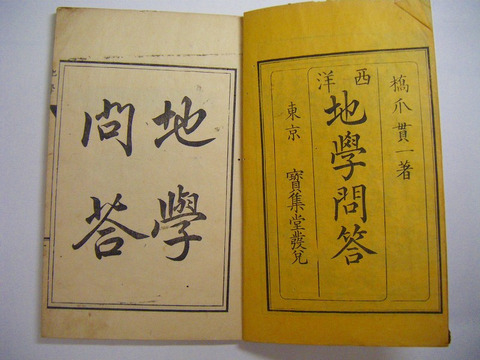 橋爪貫一著
西洋
地學問答
東京 寶集堂發兌
地學
問答